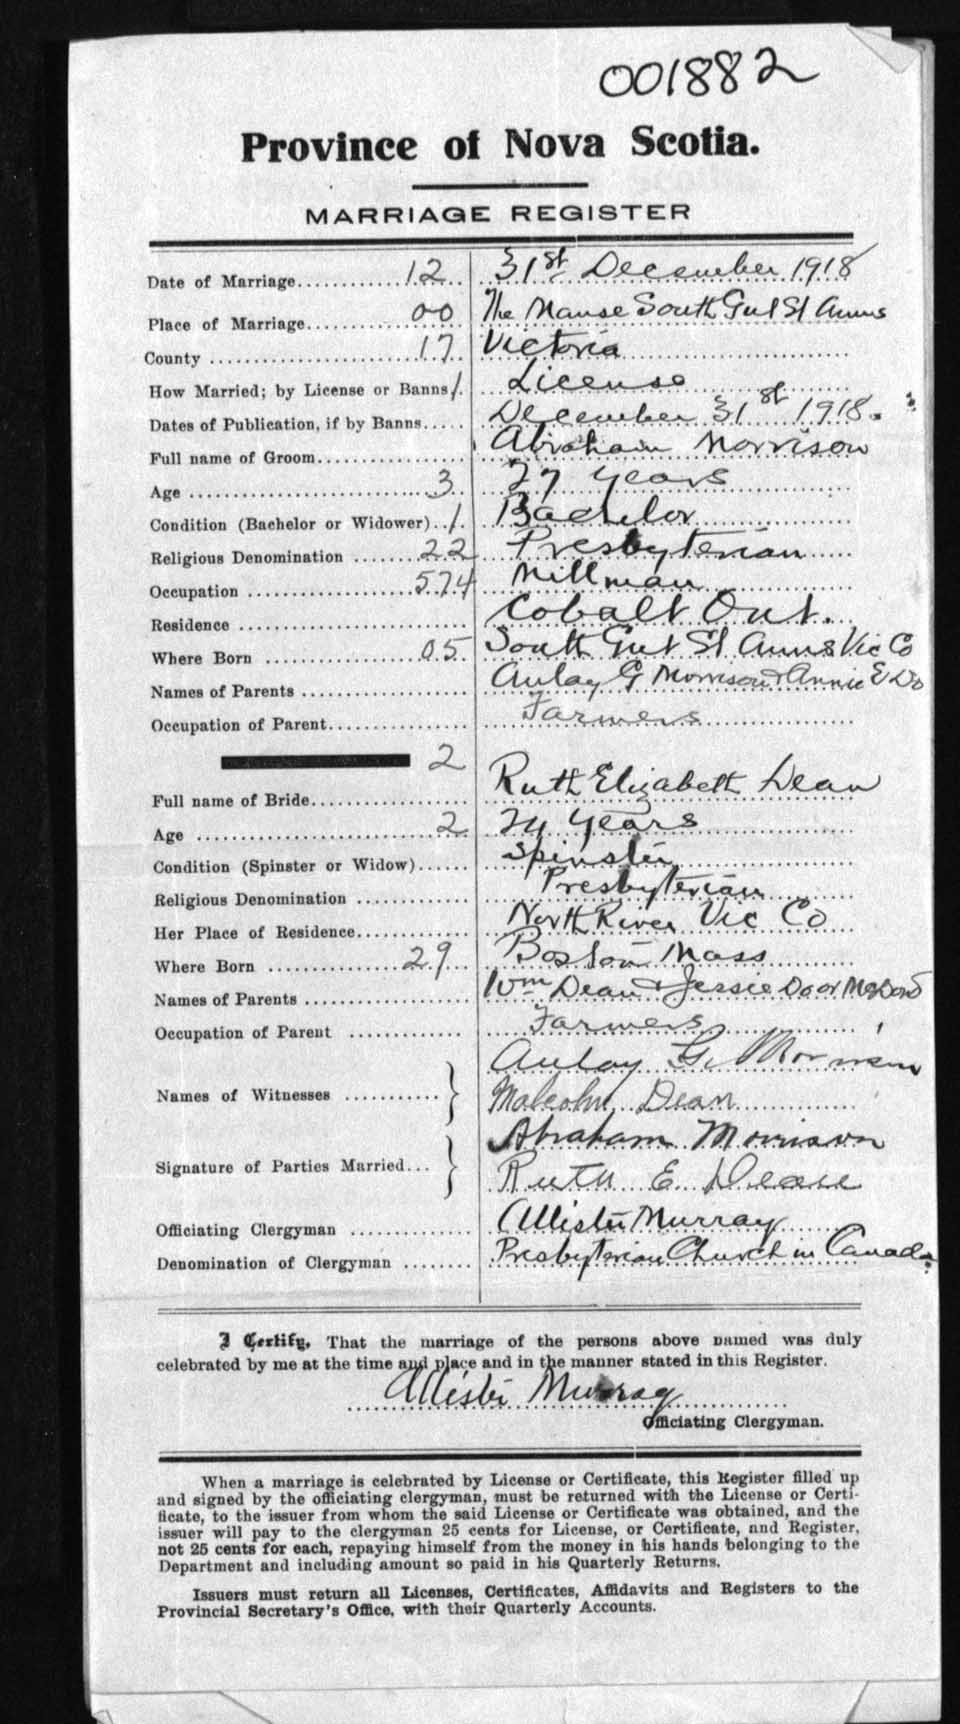 001882
Province of Nova Scotia.
MARRIAGE REGISTER
Date of Marriage 12 31st December 1918
Place of Marriage 00 The Manse South Gut St Anns
County 17 Victoria
How Married; by License or Banns 1 License
Dates of Publication, if by Banns December 31st 1918.
Full name of Groom Abraham Morrison
Age 3 27 years
Condition (Bachelor or Widower) 1 Bachelor
Religious Denomination 22 Presbyterian
Occupation 574 Millman
Residence Cobalt Ont.
Where Born 05 South Gut St Anns Vic Co
Names of Parents Aulay G Morrison & Annie E Do
Occupation of Parent Farmers
2
Full name of Bride Ruth Elizabeth Dean
Age 2 24 years
Condition (Spinster or Widow) Spinster
Religious Denomination Presbyterian
Her Place of Residence North River Vic Co
Where Born 29 Boston Mass
Names of Parents Wm Dean & Jessie Do or
Occupation of Parent Farmers
Aulay G. Morrison
Names of Witnesses Malcolm Dean
Abraham Morrison
Signature of Parties Married Ruth E Dean
Officiating Clergyman Allister Murray
Denomination of Clergyman Presbyterian Church in Canada.
I Certify, That the marriage of the persons above named was duly
celebrated by me at the time and place and in the manner stated in this Register.
Allister Murray
Officiating Clergyman.
When a marriage is celebrated by License or Certificate, this Register filled up
and signed by the officiating clergyman, must be returned with the License or Certi-
ficate, to the issuer from whom the said License or Certificate was obtained, and the
issuer will pay to the clergyman 25 cents for License, or Certificate, and Register,
not 25 cents for each, repaying himself from the money in his hands belonging to the
Department and including amount so paid in his Quarterly Returns.
Issuers must return all Licenses, Certificates, Affidavits and Registers to the
Provincial Secretary's Office, with their Quarterly Accounts.